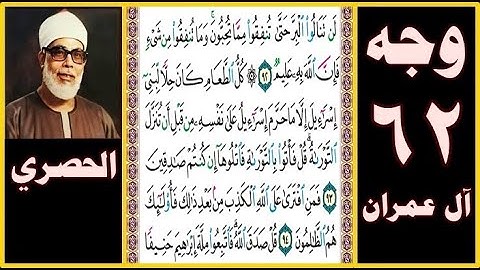 وجه
٦٢
آل عمران
لَن تَنَالُوا۟ ٱلْبِرَّ حَتَّىٰ تُنفِقُوا۟ مِمَّا تُحِبُّونَ ۚ وَمَا تُنفِقُوا۟ مِن شَىْءٍ
فَإِنَّ ٱللَّهَ بِهِۦ عَلِيمٌ ٩٢ كُلُّ ٱلطَّعَامِ كَانَ حِلًّا لِّبَنِىٓ
إِسْرَٰٓءِيلَ إِلَّا مَا حَرَّمَ إِسْرَٰٓءِيلُ عَلَىٰ نَفْسِهِۦ مِن قَبْلِ أَن تُنَزَّلَ
ٱلتَّوْرَىٰةُ ۗ قُلْ فَأْتُوا۟ بِٱلتَّوْرَىٰةِ فَٱتْلُوهَآ إِن كُنتُمْ صَٰدِقِينَ
٩٣ فَمَنِ ٱفْتَرَىٰ عَلَى ٱللَّهِ ٱلْكَذِبَ مِنۢ بَعْدِ ذَٰلِكَ فَأُو۟لَٰٓئِكَ
هُمُ ٱلظَّٰلِمُونَ ٩٤ قُلْ صَدَقَ ٱللَّهُ ۗ فَٱتَّبِعُوا۟ مِلَّةَ إِبْرَٰهِيمَ حَنِيفًا
الحصري